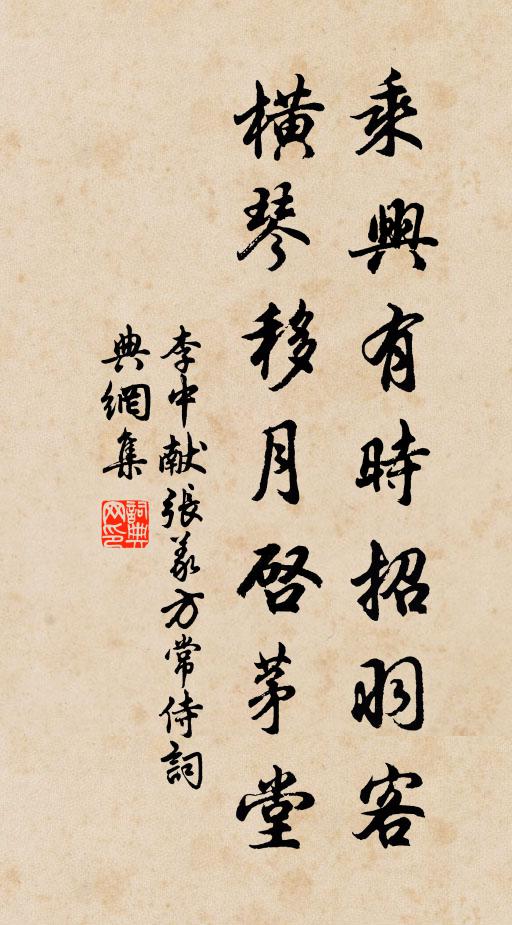 乘興有時招羽客
橫琴移月啓茅堂
李中献張義方常侍詞
典網集
詞典网印